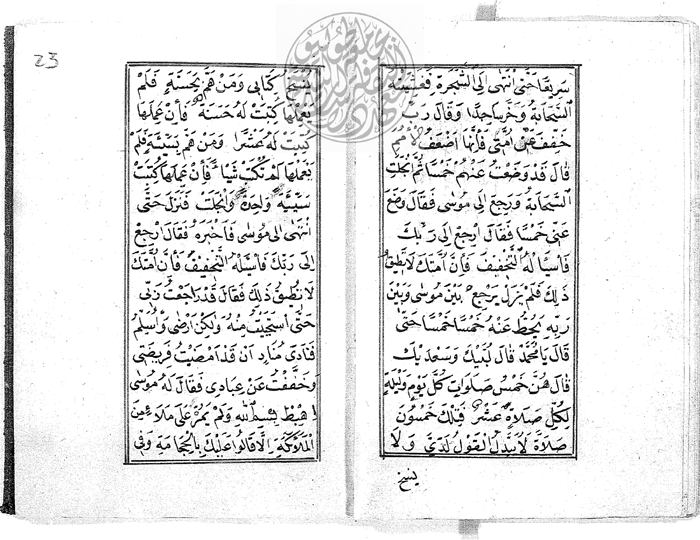 سريعا حتى انتهى الى الشجرة فغشيته
السحابة وخر ساجدا وقال رب
خفف عن امتى فانها اضعف الامم
قال قد وضعت عنهم خمسا ثم انجلت
السحابة ورجع الى موسى فقال وضع
عنى خمسا فقال ارجع الى ربك
فاسياله التخفيف فان امتك لا تطيق
ذلك فلم يزل يرجع بين موسى وبين
ربه يحط عنه خمسا خمسا حتى
قال يا محمد قال لبيك وسعديك
قال هن خمس صلوات كل يوم وليلة
لكل صلاة عشر فتلك خمسون
صلاة لا يبدل القول لدي ولا
ينسخ
23
ينسخ كتابى ومن هم بحسنة فلم
يعملها كتبت له حسنة فان عملها
كتبت له عشرا ومن هم بسيئة فلم
يعملها لم تكتب شيا فان عملها كتبت
سيئة واحدة وانجلت فنزل حتى
انتهى الى موسى فاخبره فقال ارجع
الى ربك فاسئله التخفيف فان امتك
لا تطيق ذلك فقال قد راجعت ربى
حتى استحييت منه ولكن ارضى واسلم
فنادى مناد ان قد امضيت فريضتى
وخففت عن عبادى فقال له موسى
اهبط بسم الله ولم يمر على ملاء من
الملائكة الا قالوا عليك بالحجامة وفى